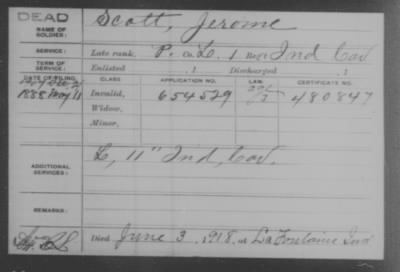 DEAD
NAME OF SOLDIER:
Scott, Jerome
SERVICE:
Late rank, P. Co. L, 1 Reg't Ind Cav
TERM OF SERVICE:
Enlisted , 1 Discharged , 1
DATE OF FILING. CLASS. APPLICATION NO. LAW. CERTIFICATE NO.
1888 May 11 Invalid, 654529 480847
Widow,
Minor,
ADDITIONAL SERVICES:
L, 11" Ind, Cav.
REMARKS:
Died June 3, 1918, at LaFontaine Ind